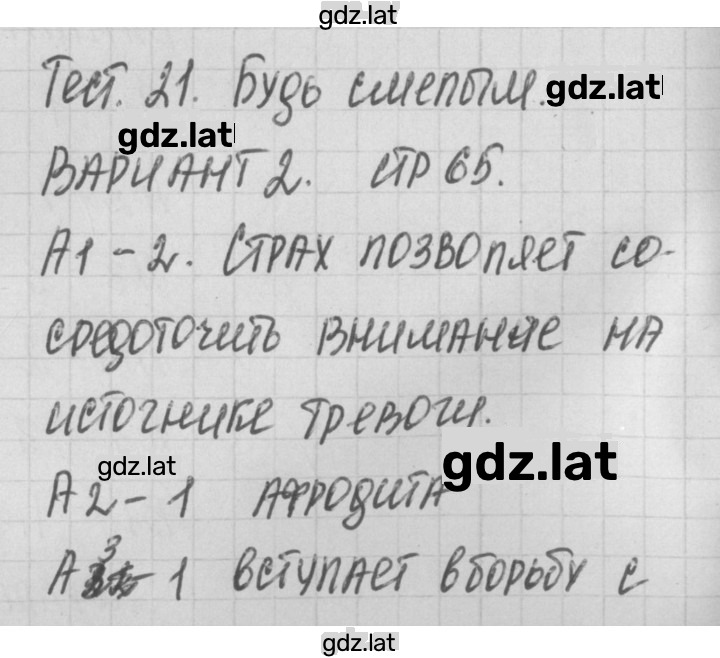 gdz.lat
Тест. 21. Будь смелым.
gdz.lat
gdz.lat
ВАРИАНТ 2. СТР 65.
А1 - 2. Страх позволяет со-
средоточить внимание на
источнике тревоги.
gdz.lat
gdz.lat
А2 - 1 Афродита
А3 - 1 вступает в борьбу с
gdz.lat